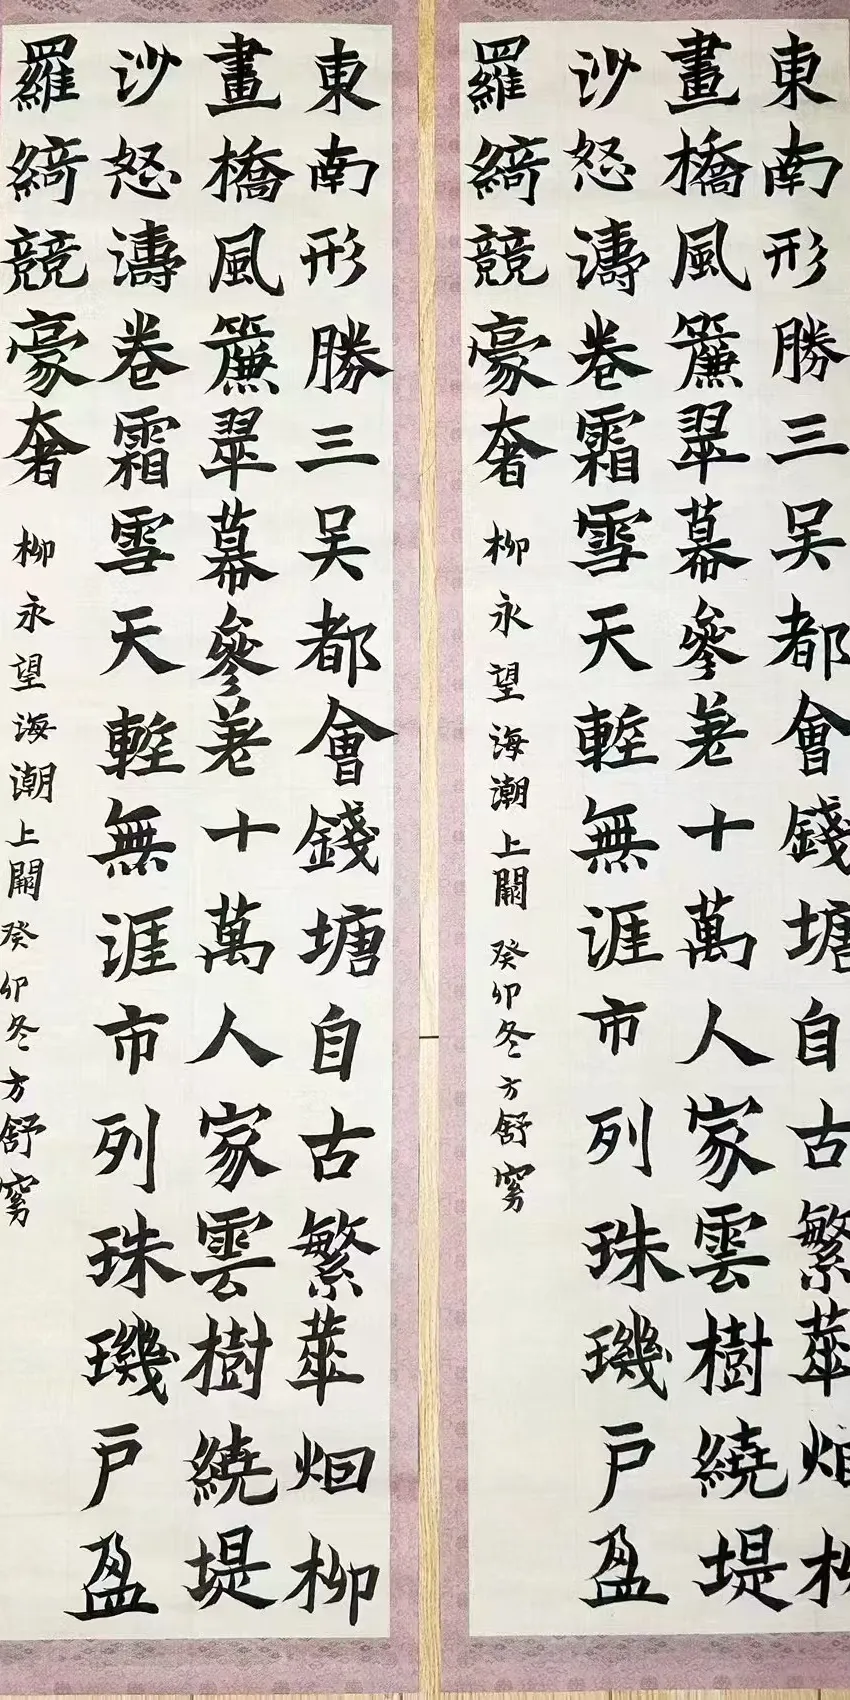 東南形勝三吴都會錢塘自古繁華烟柳
畫橋風簾翠幕參差十萬人家雲樹繞堤
沙怒濤卷霜雪天塹無涯市列珠璣戶盈
羅綺競豪奢
柳永望海潮上闋癸卯冬方舒寫
東南形勝三吴都會錢塘自古繁華烟柳
畫橋風簾翠幕參差十萬人家雲樹繞堤
沙怒濤卷霜雪天塹無涯市列珠璣戶盈
羅綺競豪奢
柳永望海潮上闋癸卯冬方舒寫